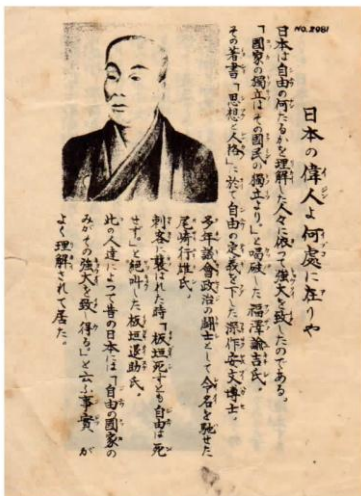 NO. 2081
日本の偉人よ何處に在りや
日本は自由の何たるかを理解した人々に依つて強大を致したのである。
「國家の獨立はその國民の獨立より」と喝破した福澤諭吉氏。
その著書「思想と人格」に於て自由の定義を下した深作安文博士。
多年議會政治の鬪士として令名を馳せた
尾崎行雄氏。
刺客に襲はれた時「板垣死すとも自由は死
せず」と絶叫した板垣退助氏。
此の人達によつて昔の日本は「自由の國家の
みがその強大を致し得る」と云ふ事實が
よく理解されて居た。